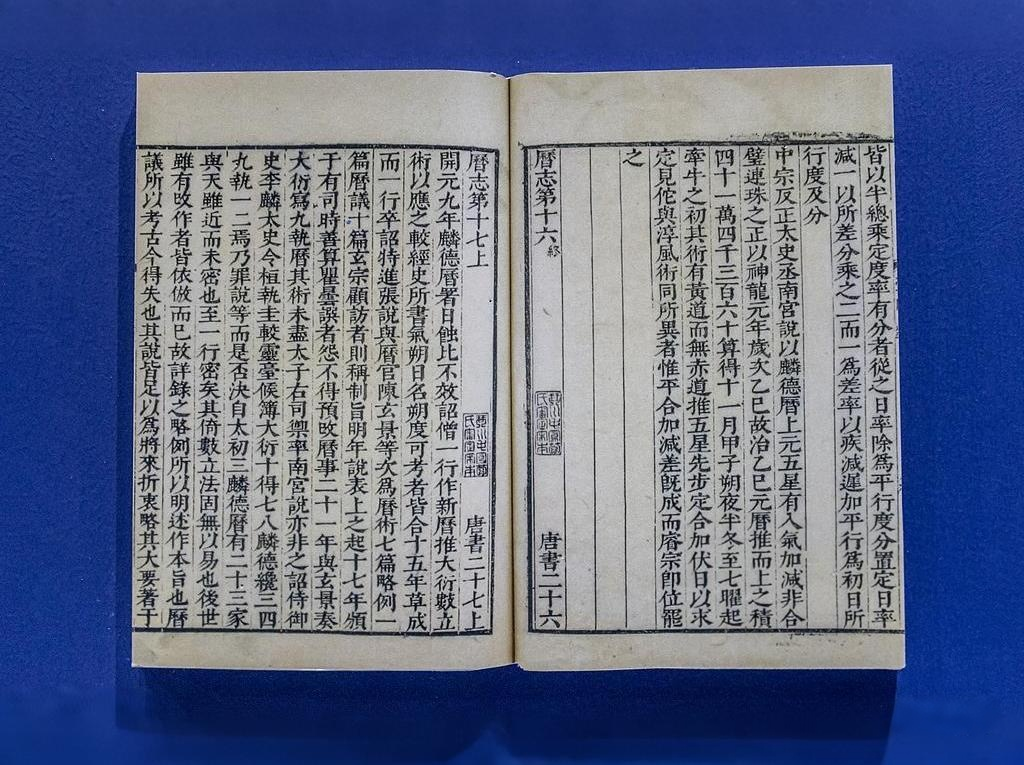 皆以半總乘定度率有分者從之日率除爲平行度分置定日率
減一以所差分乘之二而一爲差率以疾減遲加平行爲初日所
行度及分
中宗反正太史丞南宮說以麟德曆上元五星有入氣加減非合
璧連珠之正以神龍元年歲次乙巳故治乙巳元曆推而上之積
四十一萬四千三百六十算得十一月甲子朔夜半冬至七曜起
牽牛之初其術有黃道而無赤道推五星先步定合加伏日以求
定見佗與淳風術同所異者惟平合加減差旣成而睿宗卽位罷
之
曆志第十六終
唐書二十六
曆志第十七上
唐書二十七上
開元九年麟德曆署日蝕比不效詔僧一行作新曆推大衍數立
術以應之較經史所書氣朔日名朔度可考者皆合十五年草成
而一行卒詔特進張說與曆官陳玄景等次爲曆術七篇略例一
篇曆議十篇玄宗顧訪者則稱制旨明年說表上之起十七年頒
于有司時善算瞿曇譔者怨不得預改曆事二十一年與玄景奏
大衍寫九執曆其術未盡太子右司禦率南宮說亦非之詔侍御
史李麟太史令桓執圭較靈臺候簿大衍十得七八麟德纔三四
九執一二焉乃罪說等而是否決自太初三麟德曆有二十三家
與天雖近而未密也至一行密矣其倚數立法固無以易也後世
雖有改作者皆依倣而已故詳錄之略例所以明述作本旨也曆
議所以考古今得失也其說皆足以爲將來折衷略其大要著于